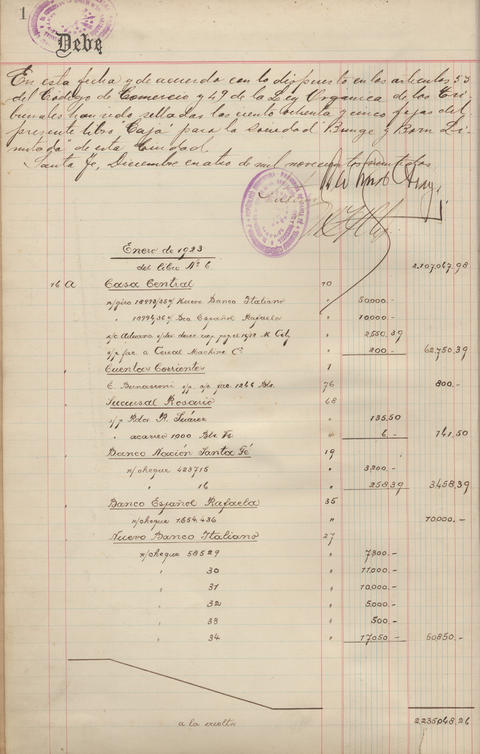 1
Debe
En esta fecha y de acuerdo con lo dispuesto en los artículos 53
del Código de Comercio y 49 de la Ley Orgánica de los Tri
bunales han sido selladas las ciento ochenta y cinco fojas del
presente libro "Caja" para la Sociedad Bunge y Born Li
mitada" de esta Ciudad.
Santa Fe, Diciembre cuatro de mil novecientos veintidos
Enero de 1923
del libro Nº 6 2.107.067.98
16 A Casa Central 70
n/giro Nuevo Banco Italiano " 50.000.-
" Bco Español Rafaela " 10.000.-
" 2550.39
s/p fac. a Cereal Machine Cº " 200.- 62,750.39
" Cuentas Corrientes 1
E. Bunasconi 76 800.-
" Sucursal Rosario 68
s/p Rdor R. Suárez " 135.50
" acarreo 1000 " 6.- 141,50
" Banco Nación Santa Fé 19
n/cheque 423715 " 3.200.-
" 16 " 258.39 3458,39
" Banco Español Rafaela 35
n/cheque 1.654.436 " 10.000.-
" Nuevo Banco Italiano 27
n/cheque 58529 " 7.300.-
" 30 " 11.000.-
" 31 " 10,000.-
" 32 " 5.000.-
" 33 " 500.-
" 34 " 17.050.- 50850.-
a la vuelta 2.235.048,26